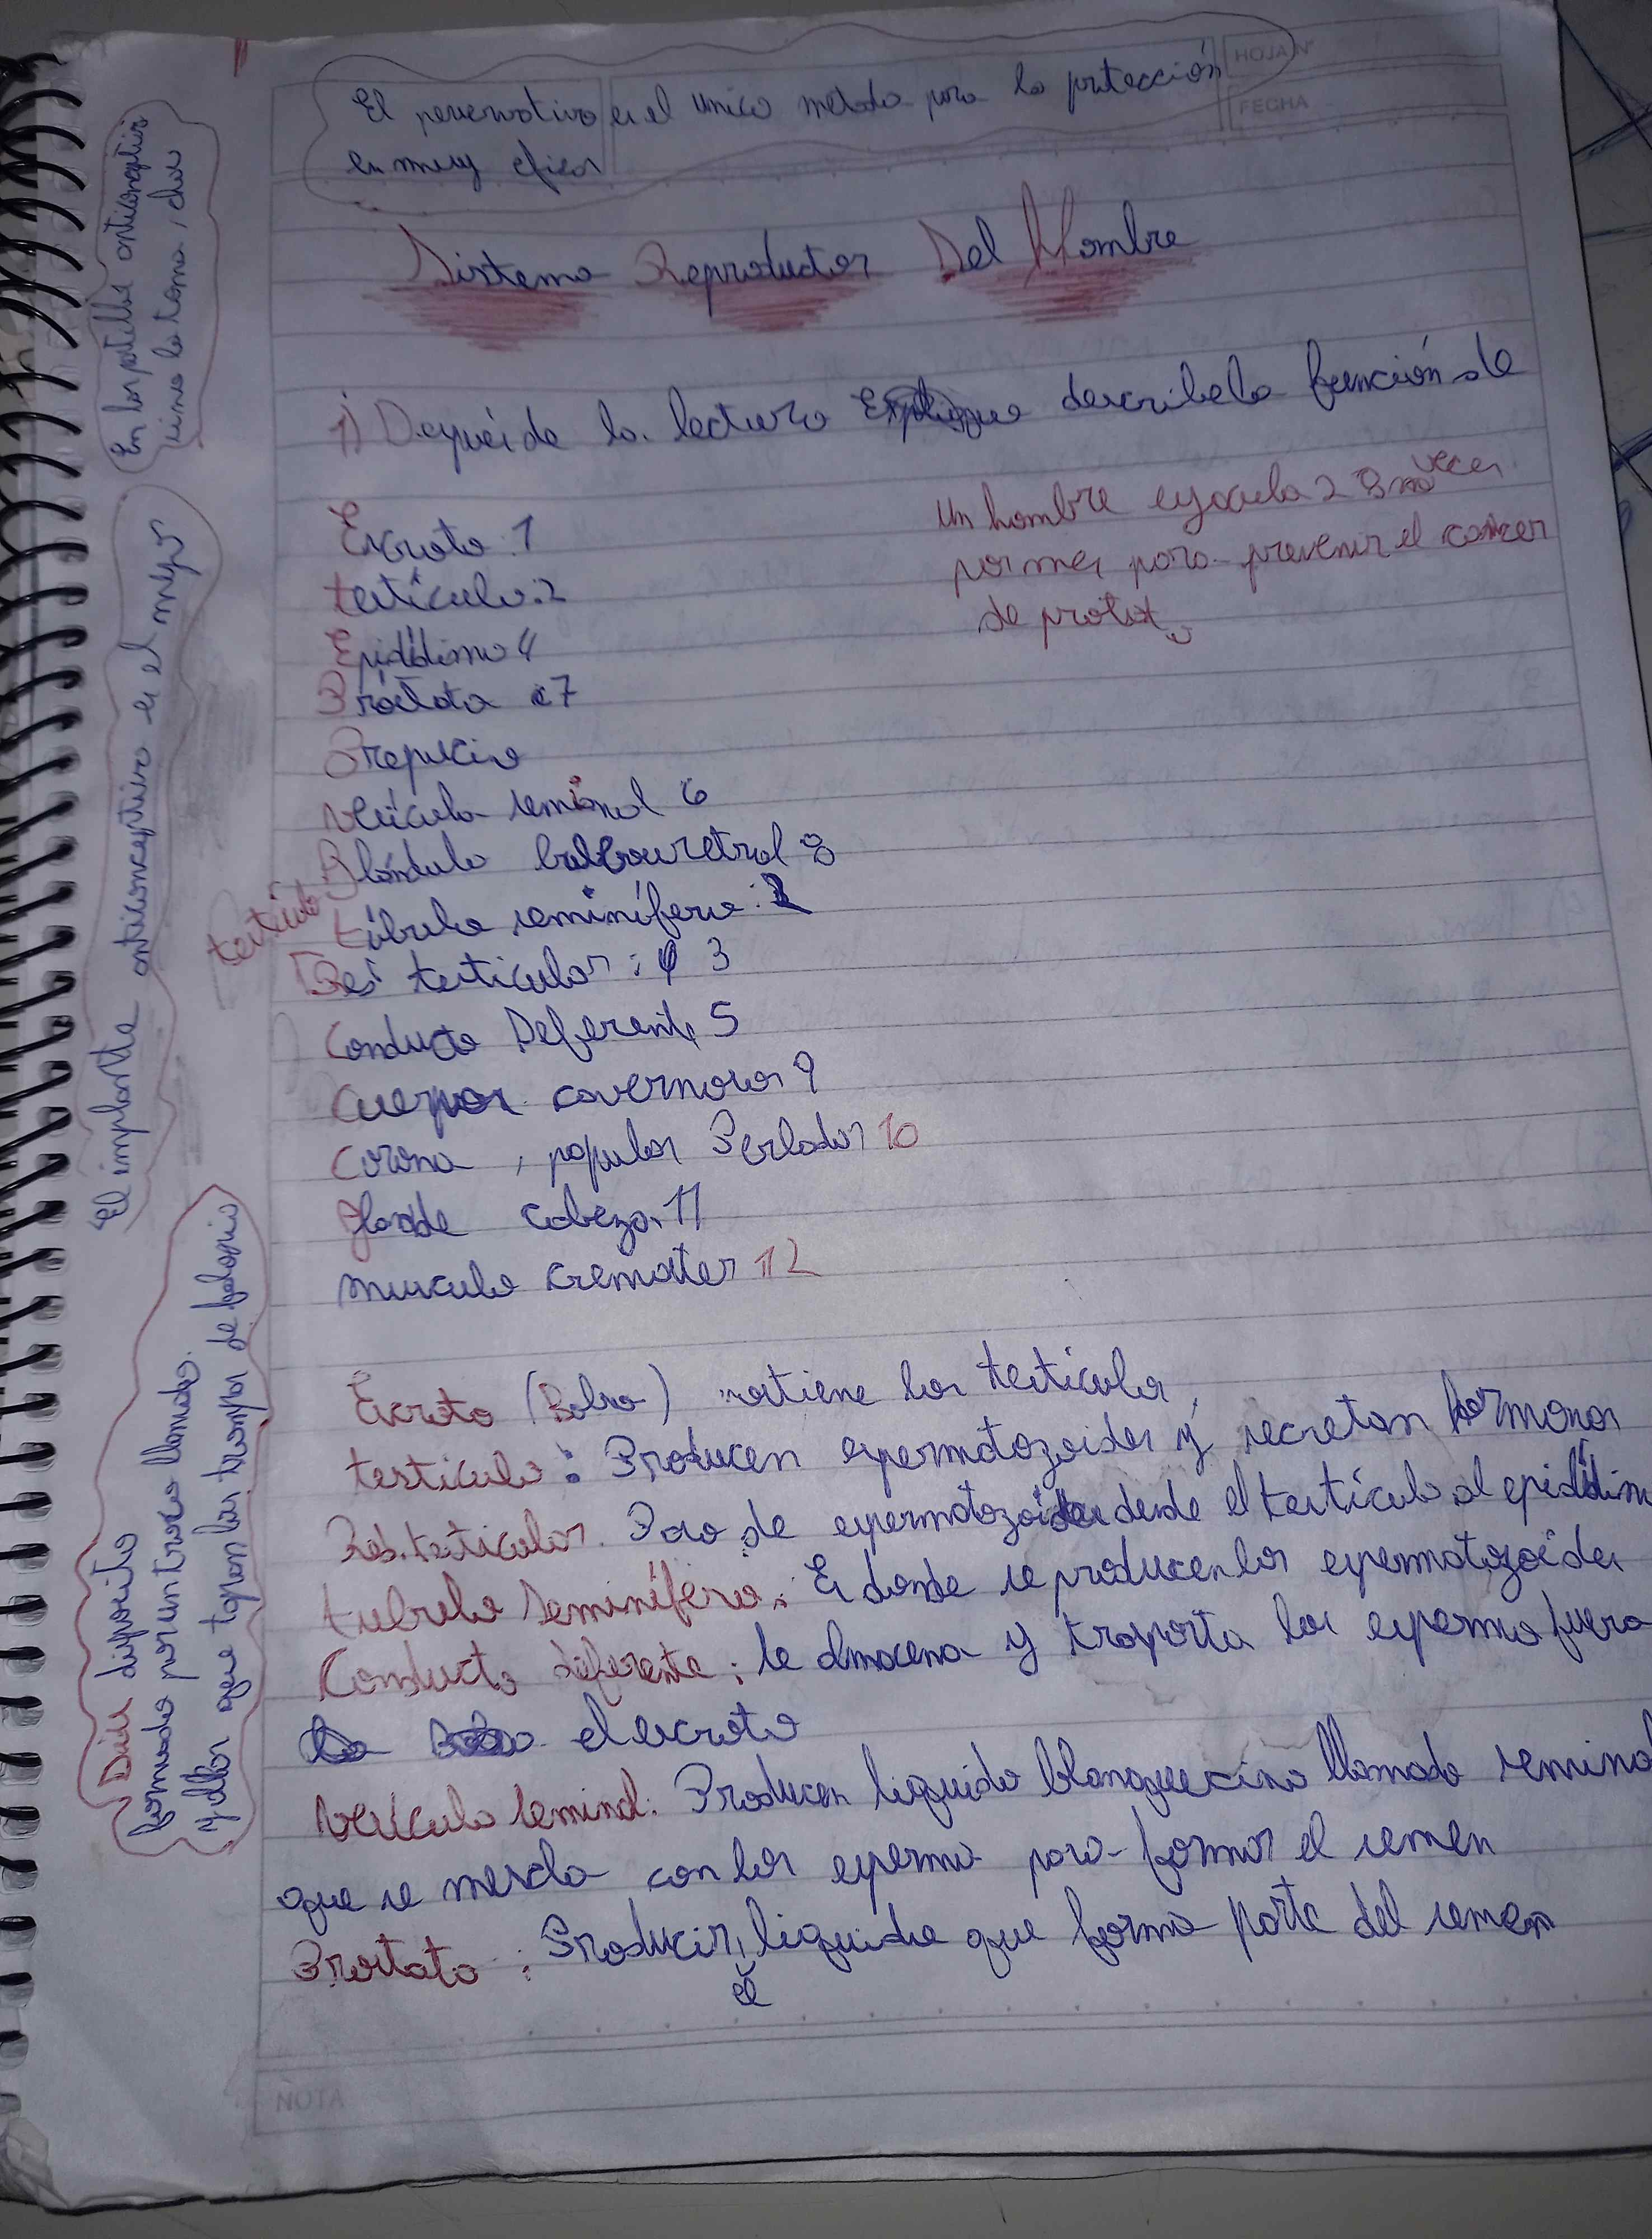 HOJA N°
FECHA
El perservativo es el unico metodo para la protección
en muy eficas
Sistema Reproductor Del Hombre
1) Después de la lectura Explique describe la función de
Escroto : 1
testículo : 2
Epidídimo 4
Próstata : 7
Prepucio
vesícula seminal 6
Glándula bulbouretral 8
túbulo seminífero : 2
testículo
Red testicular : 3
Conducto Deferente 5
Cuerpos cavernosos 9
Corona , papulas Perladas 10
glande cabeza 11
musculo cremaster 12
Un hombre eyacula 2 veces
por mes para prevenir el cancer
de prostat
Escroto (Bolsa) sostiene los testículos,
testiculo : Producen espermatozoides y secretan hormonas
Red. testicular. Paso de espermatozoides desde el testículo al epidídim
tubulo Seminífero : Es donde se producen los espermatozoides
Conducto deferente : Se almacena y trasporta los espermas fuera
el escroto
vesícula seminal : Producen liquido blanquecino llamado seminal
que se mescla con los esperma para formar el semen
Prostata : Producir, liquido que forma parte del semen
el
NOTA
En las pastillas anticonceptiv
uno la toma ,
El implante anticonceptivo es el mejor
Diu dispositivo
formado por un trozo llamado.
y ellos que tapan las trompas de falopio